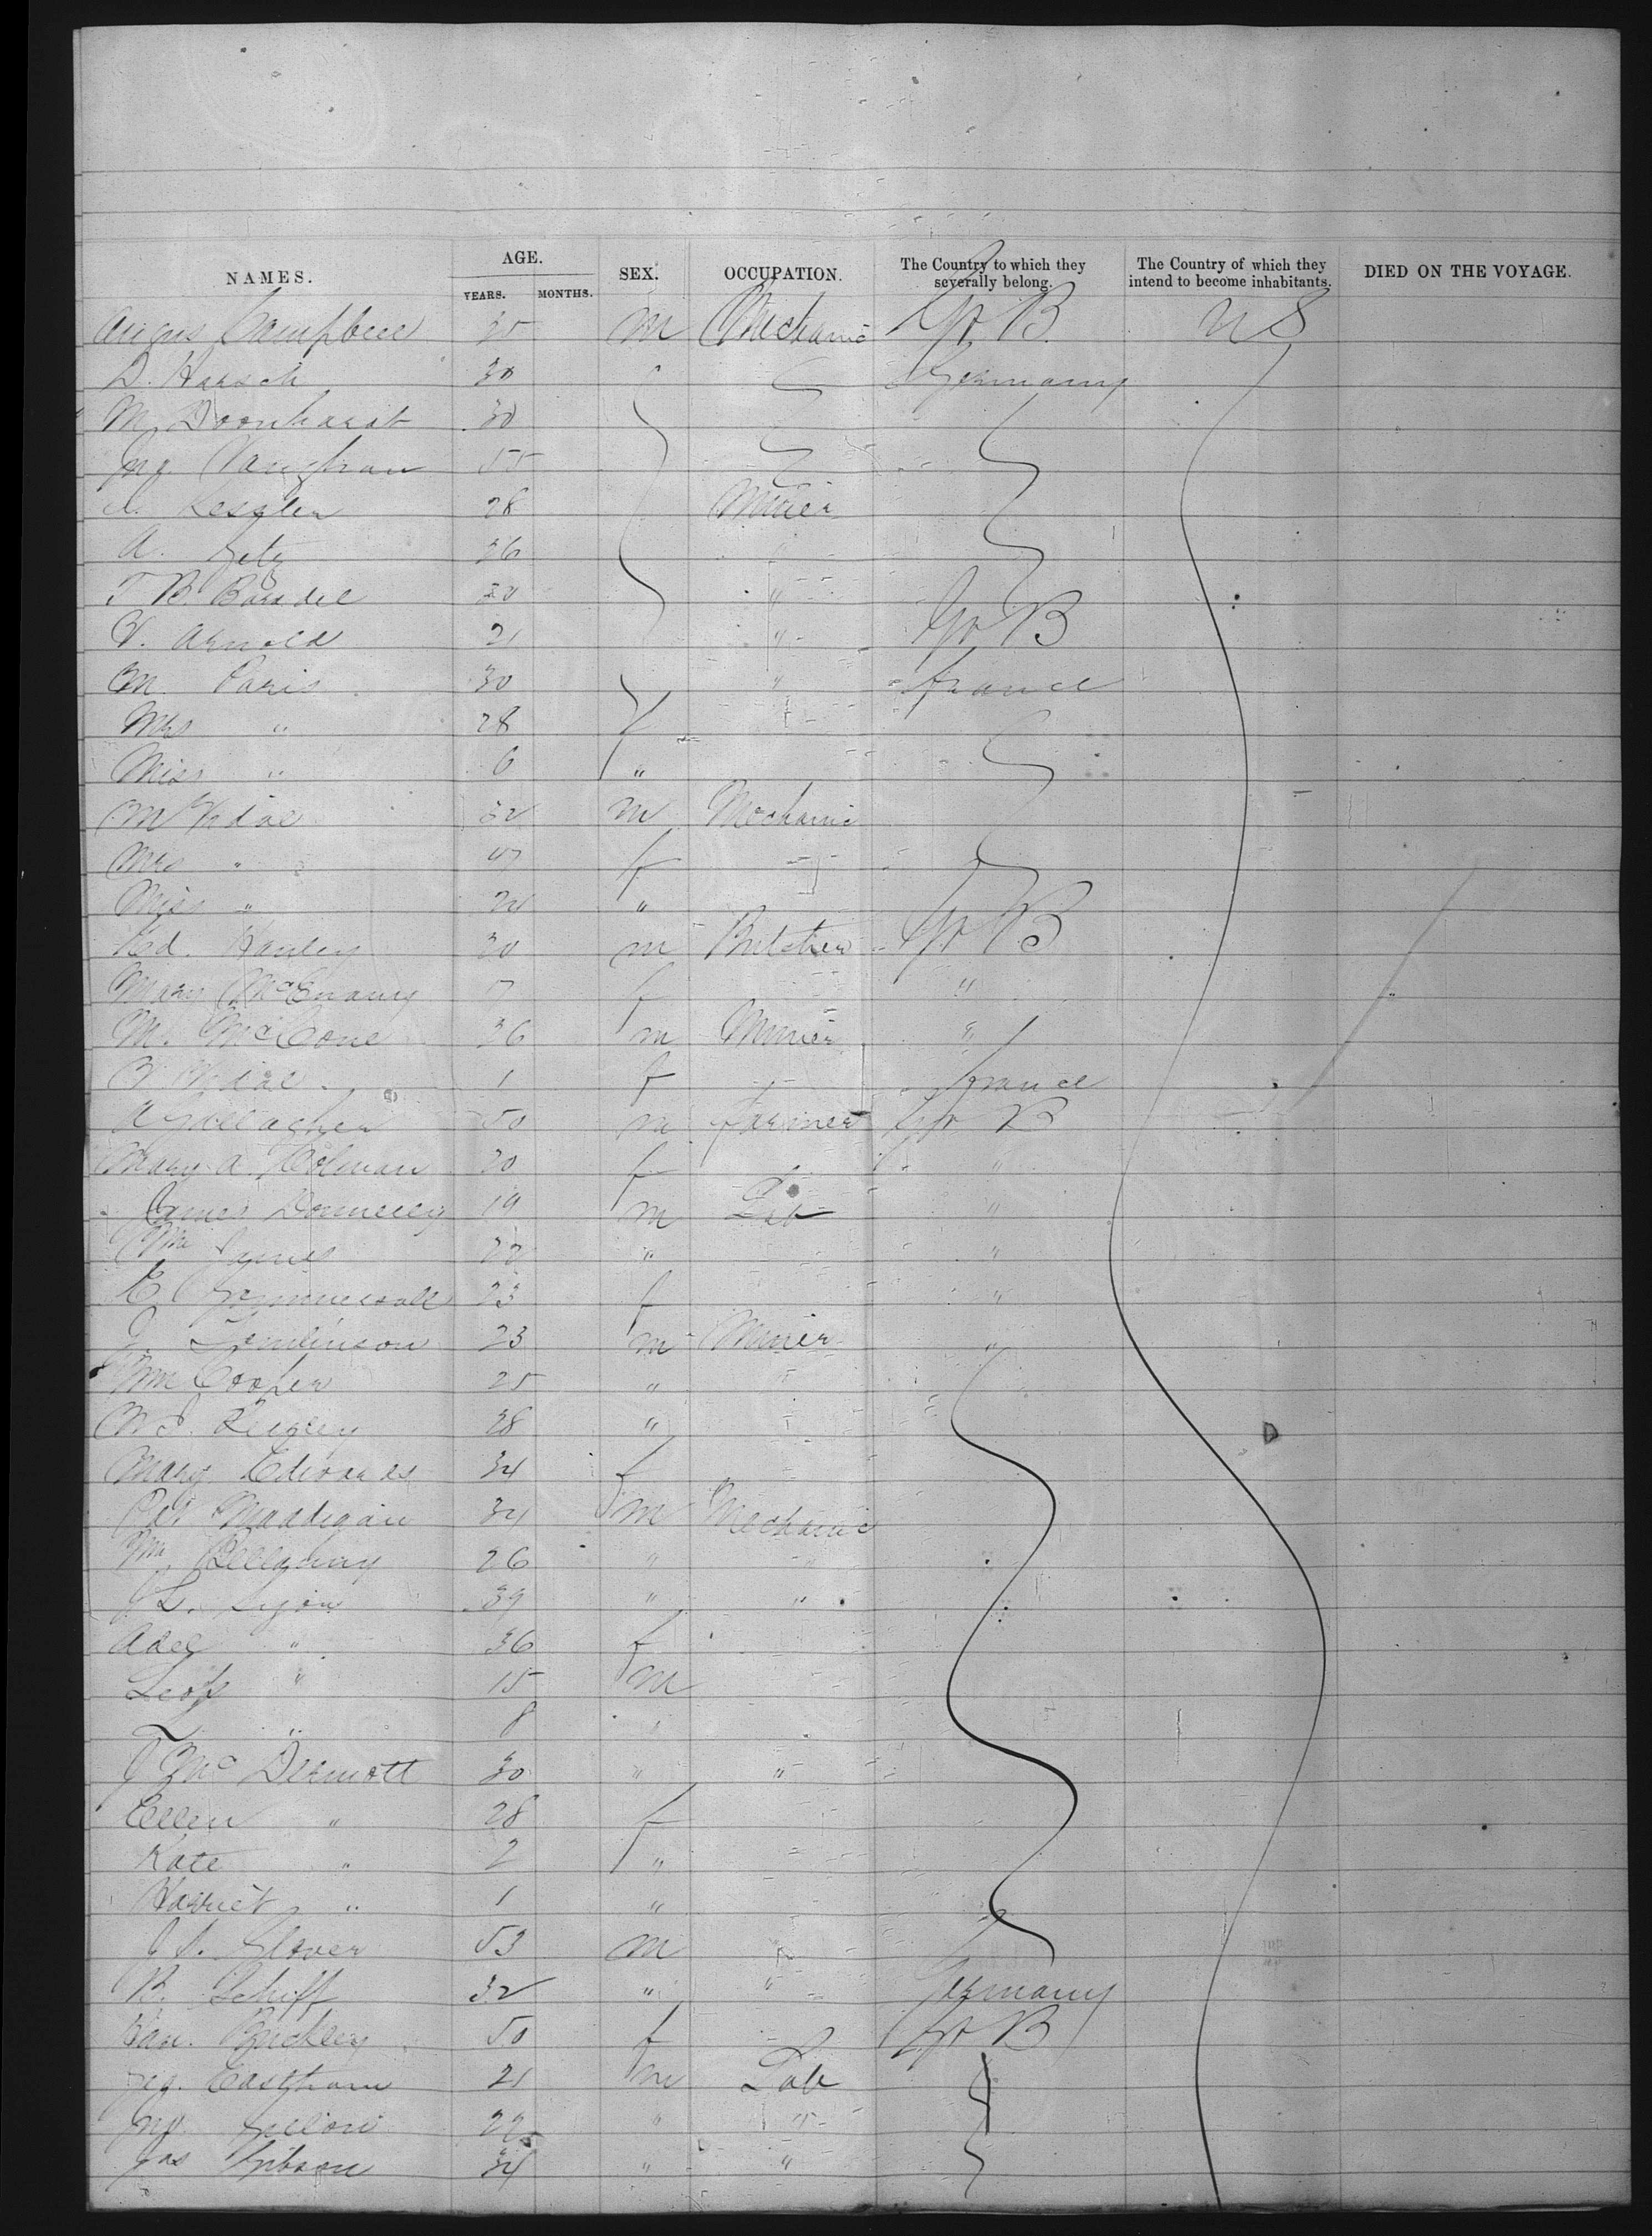 NAMES. AGE. YEARS. MONTHS. SEX. OCCUPATION. The Country to which they severally belong. The Country of which they intend to become inhabitants. DIED ON THE VOYAGE.
Angus Campbell 25 m Mechanic Gr B. U S
D. Haesch 30 " Germany
M. Doonhardt 30
Jno. Vaughan 55
Kessler 28 Miner
A. Getz 26
T B. Barsdel 20 "
V. Arnold 21 " Gr B
M. Paris 30 " France
Mrs " 28 f
Miss " 6 "
M Vidal 32 m Mechanic
Mrs " f
Miss " "
Ed. Hanley 30 m Butcher Gr B
Mary McEnany 17 f "
M. McCone 36 m Miner "
Vidal 1 f France
Gallagher 50 m farmer Gr B
Mary A. Holman 30 f "
James Donnelly 19 m Lab "
Wm James 22 " "
E Gommersall 23 f "
J. Tomlinson 23 m Miner "
Wm Cooper 25 "
28 "
Mary Edwards 34 f
Pat Maadigan 34 m Mechanic
Wm 26 " "
J L. Lyon 39 " "
Adel " 36 f
Leop " 15 m
" 8 "
J McDermott 30 " "
Ellen " 28 f
Kate " 2 "
Harriet " 1 "
J S. Glover 53 m
B. Schiff 32 " " Germany
Han. Buckley 50 f Gr B
Geo. Eastham 21 m Lab
Jno. 22 " "
Jas Gibson 34 " "